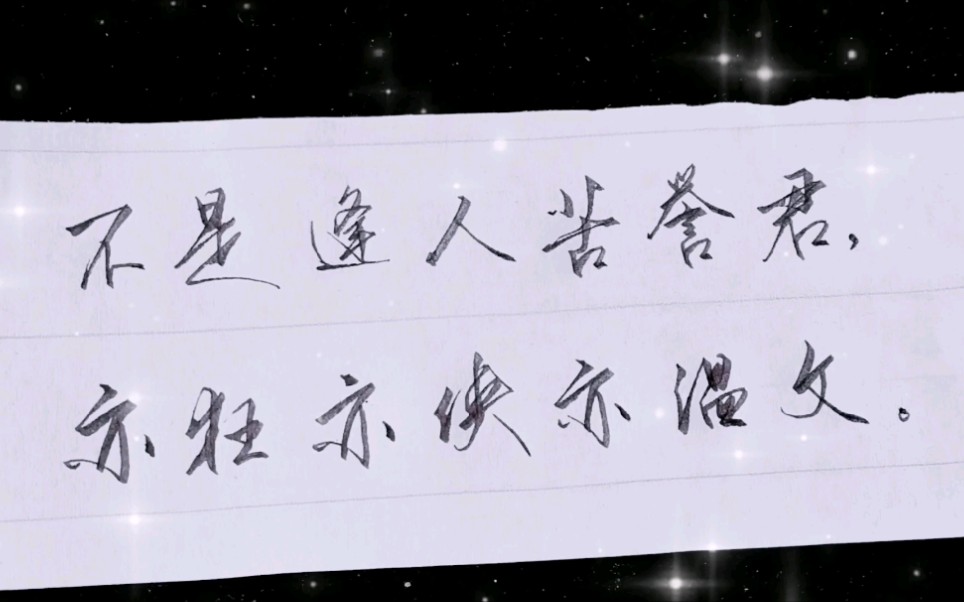 不是逢人苦誉君，
亦狂亦侠亦温文。